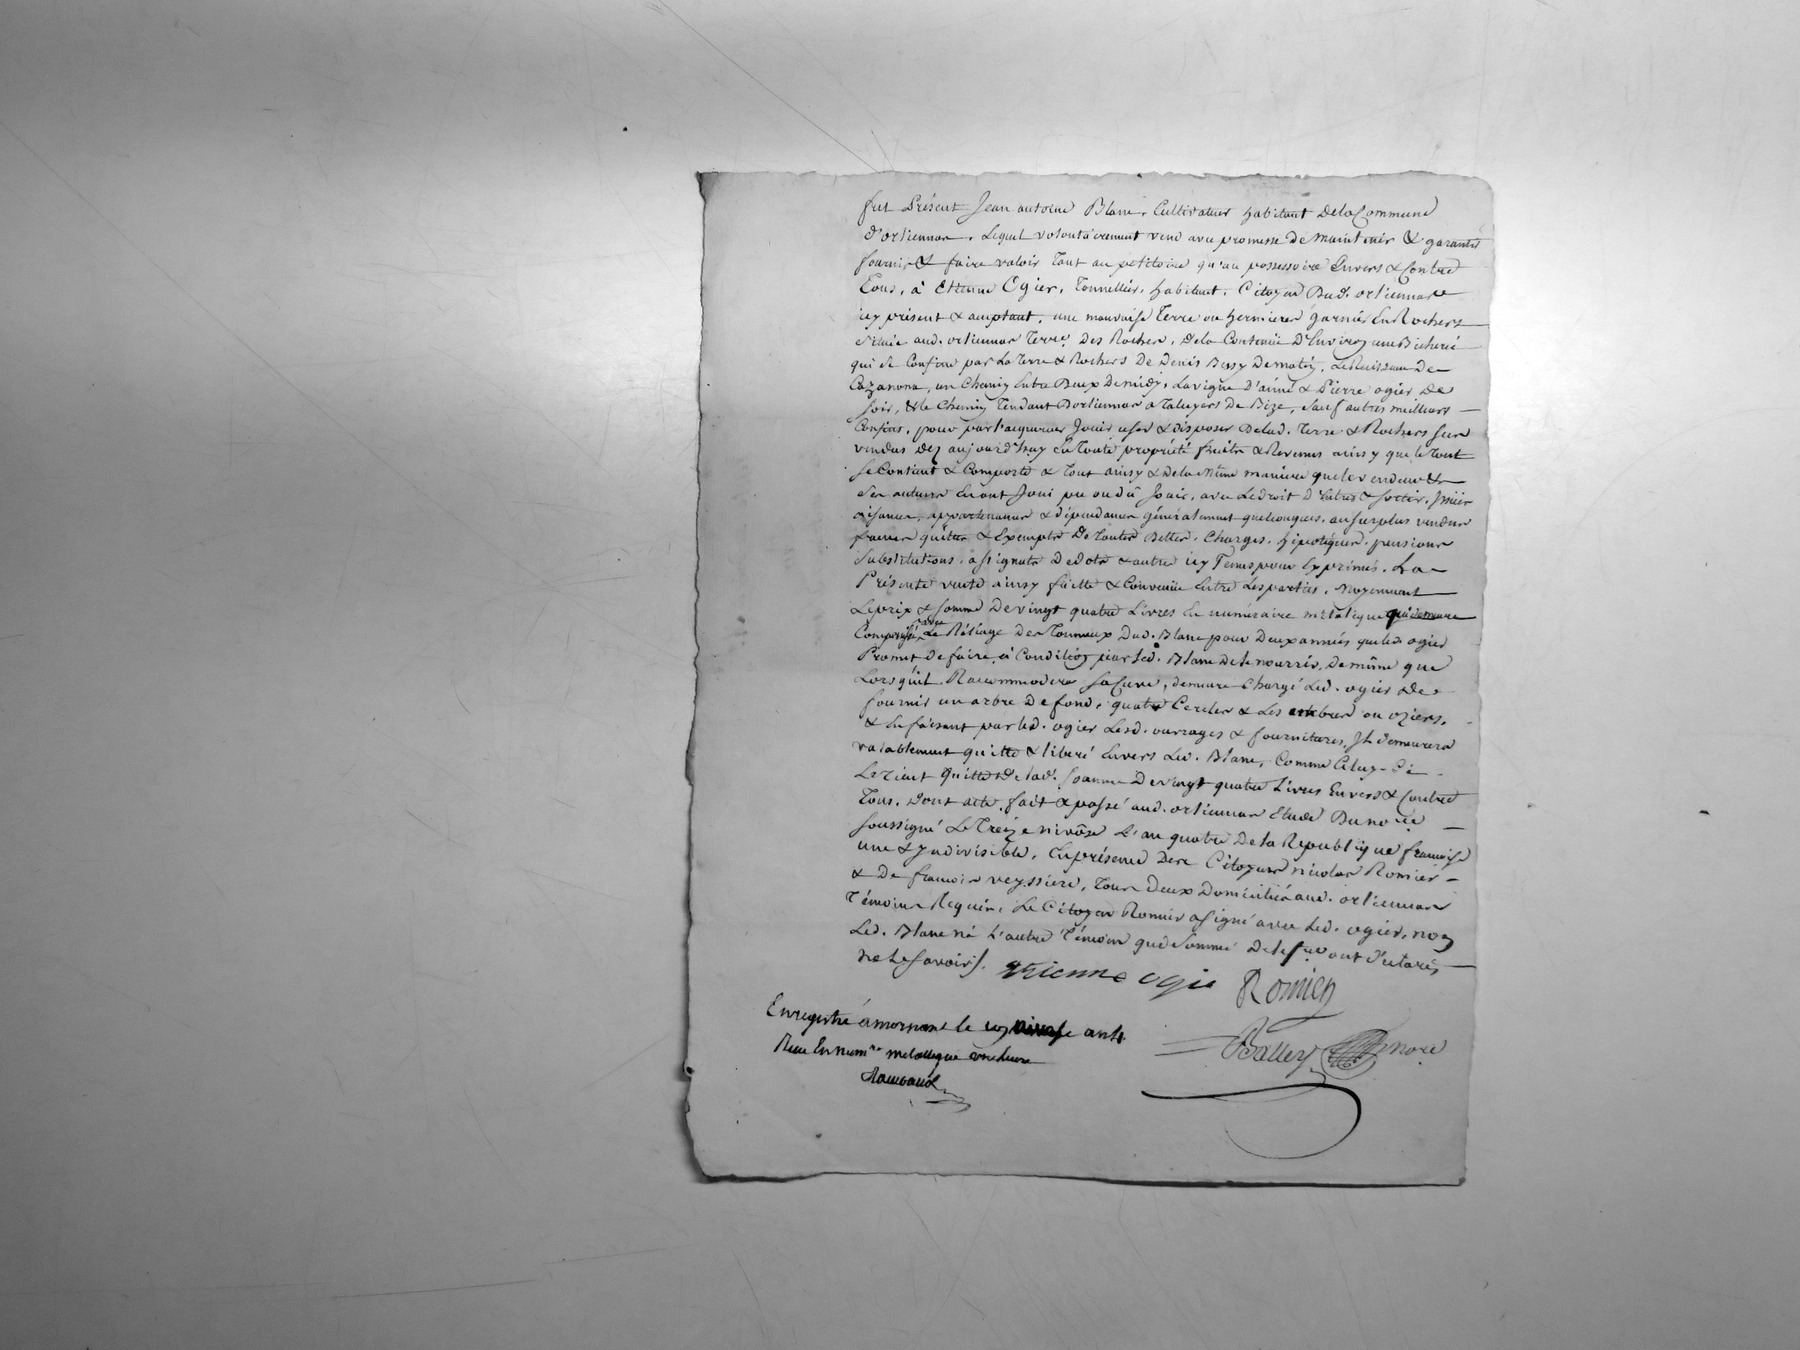 fut Présent Jean antoine Blanc, Cultivateur habitant Dela Commune
d'orliennas, Lequel volontairement vend avec promesse de maintenir & garantir
fournir & faire valoir Tant au petitoire qu'au possessoire Envers & Contre
Tous, à Etienne Ogier, Tonnellier, habitant, Citoyen Dud. orliennas
icy présent & acceptant, une mauvaise Terre ou hermieres garnie En Rochers
Située aud. orliennas Terre Des Rocher, dela Contenüe D'Environ une Bicherée
qui se Confine par La Terre & Rochers De Denis Bory De matin, Le Ruisseau De
Cazanona, un Chemin Entre Deux De midy, La vigne D'aimé & Pierre ogier De
soir, & le Chemin Tendant D'orliennas a Taluyers De Bize, Sauf autres meilleurs
Confins, pour par l'acquereur Jouir user & disposer Delad. Terre & Rochers sus
vendus Dez aujourd'huy En Toute propriété fruits & Revenus ainsy que le Tout
se Contient & Comporte & Tout ainsy & de la même maniere que le vendeur &
ses auteurs En ont Joui pu ou dû Jouir, avec Le droit D'Entrer & sortir,
aisances, appartenances & dépendances généralement quelconques, au surplus vendus
francs quittes & Exempts De Toutes Dettes, Charges, hipoteques, pensions
Substitutions, assignats De dots & autres icy Tenus pour Exprimés. La
Présente vente ainsy faitte & Convenüe Entre Les parties, moyennant
Le prix & somme De vingt quatre Livres En numéraire métalique qui demeure
Compensée avec Le Réliage des Tonneaux Dud. Blanc pour Deux années que led. ogier
Promet de faire, à Condition par led. Blanc de le nourrir, de même que
Lorsqu'il Raccommodera sa Cuve, demeure Chargé Led. ogier De
fournir un arbre De fond, quatre Cercles & Les ou oziers,
& En faisant par led. ogier Lesd. ouvrages & fournitures, Il demeurera
valablement quitte & liberé Envers Led. Blanc, Comme Celuy-Ci
Le Tient Quitte de lad. somme De vingt quatre Livres Envers & Contre
Tous. Dont acte, fait & passé aud. orliennas Etude Du no.re
soussigné Le Treize nivôse L'an quatre De la Republique française
une & Indivisible, En présence Des Citoyens nicolas Romier
& De francois veyssiere, Tous Deux Domiciliés aud. orliennas
Témoins Requis, Le Citoyen Romier a signé avec Led. ogier, non
Led. Blanc ni L'autre Témoin qui de sommé De le faire ont Déclaré
ne Le savoir.
etienne ogie Romier
Balley nore
Enregistré á mornant le nivose an 4
Recu En num.re metallique une livre